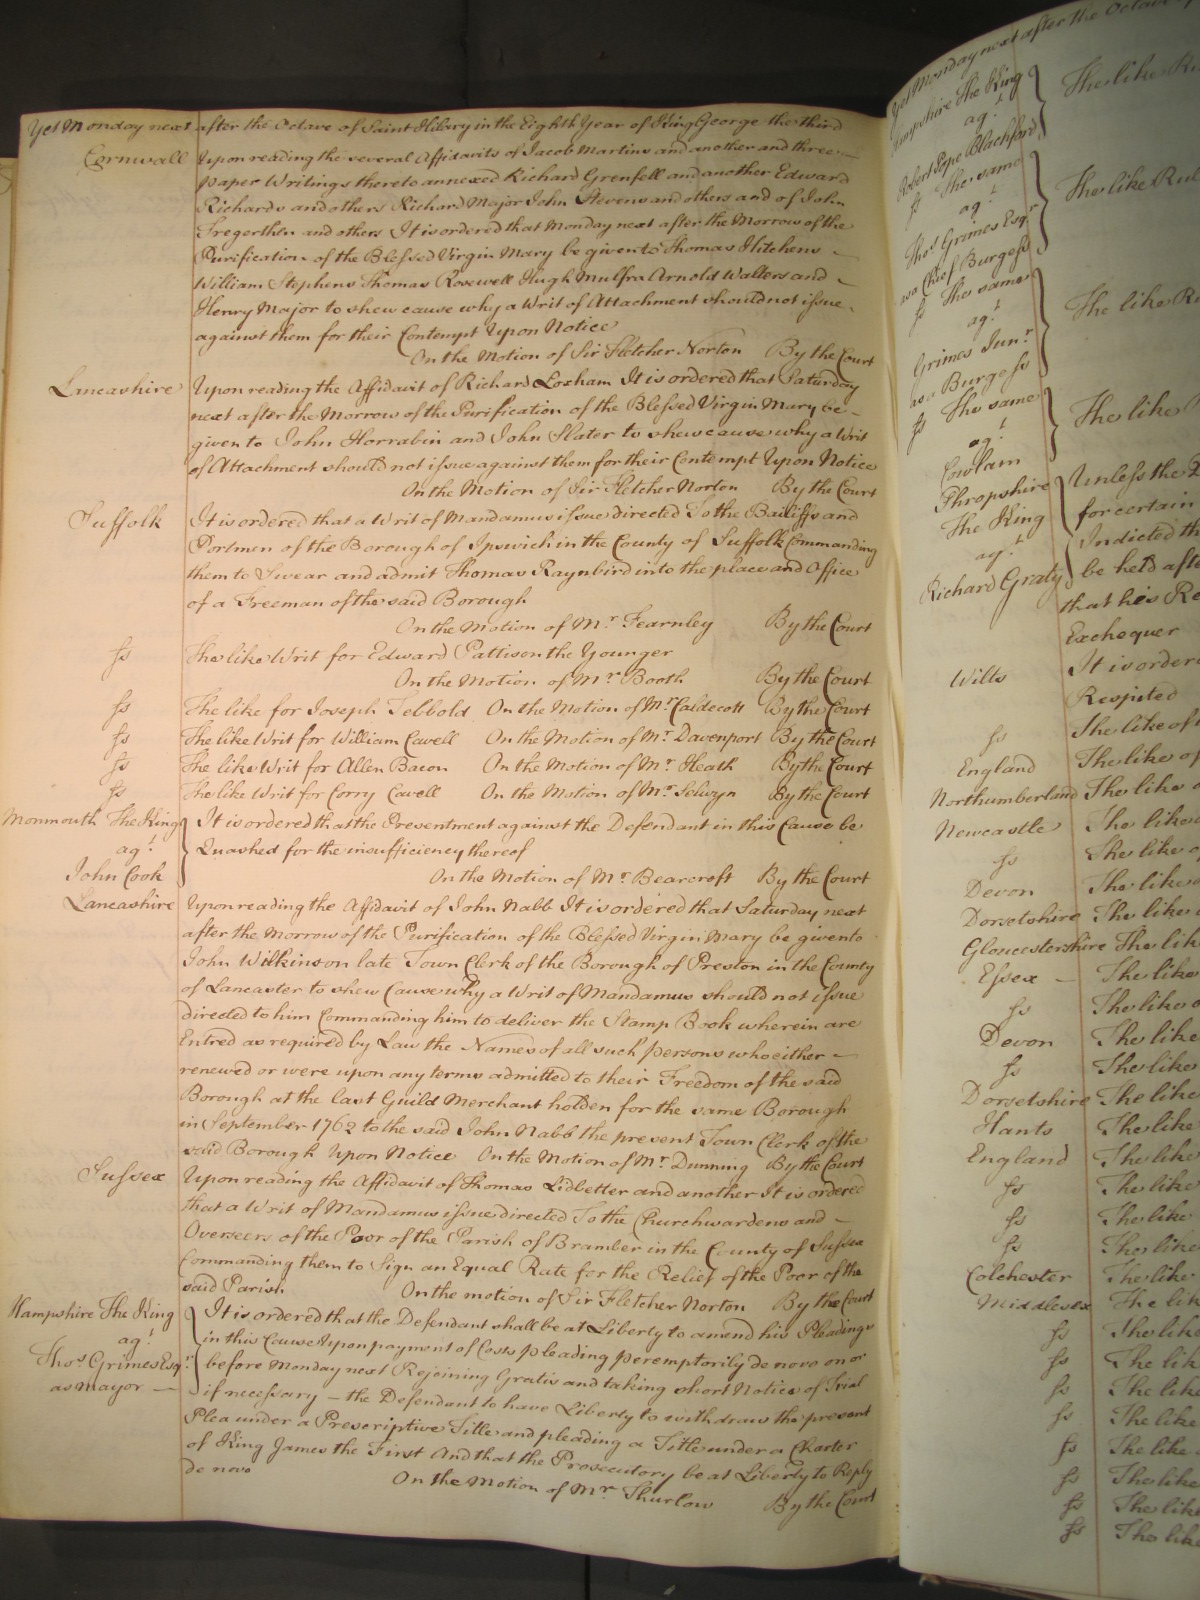 Yet Monday next after the Octave of Saint Hilary in the Eighth Year of King George the third
Cornwall Upon reading the several Affidavits of Jacob Martins and another and three
paper Writings thereto annexed Richard Grenfell and another Edward
Richards and others Richard Major John Stevens and others and of John
Tregerthen and others It is ordered that Monday next after the Morrow of the
Purification of the Blessed Virgin Mary be given to Thomas Hitchens
William Stephens Thomas Rosewell Hugh Mulfra Arnold Walters and
Henry Major to shew cause why a Writ of Attachment should not issue
against them for their Contempt Upon Notice
On the Motion of Sir Fletcher Norton By the Court
Lancashire Upon reading the Affidavit of Richard Loxham It is ordered that Saturday
next after the Morrow of the Purification of the Blessed Virgin Mary be
given to John Horrabin and John Slater to shew cause why a Writ
of Attachment should not issue against them for their Contempt Upon Notice
On the Motion of Sir Fletcher Norton By the Court
Suffolk It is ordered that a Writ of Mandamus issue directed To the Bailiffs and
Portmen of the Borough of Ipswich in the County of Suffolk Commanding
them to Swear and admit Thomas Raynbird into the place and Office
of a Freeman of the said Borough
On the Motion of Mr Fearnley By the Court
ss The like Writ for Edward Pattison the Younger
On the Motion of Mr Booth By the Court
ss The like for Joseph Tebbold On the Motion of Mr Caldecott By the Court
ss The like Writ for William Cavell On the Motion of Mr Davenport By the Court
ss The like Writ for Allen Bacon On the Motion of Mr Heath By the Court
ss The like Writ for Corry Cavell On the Motion of Mr Selwyn By the Court
Monmouth The King It is ordered that the Presentment against the Defendant in this Cause be
agt Quashed for the insufficiency thereof
John Cook On the Motion of Mr Bearcroft By the Court
Lancashire Upon reading the Affidavit of John Nabb It is ordered that Saturday next
after the Morrow of the Purification of the Blessed Virgin Mary be given to
John Wilkinson late Town Clerk of the Borough of Preston in the County
of Lancaster to shew Cause why a Writ of Mandamus should not issue
directed to him Commanding him to deliver the Stamp Book wherein are
Entred as required by Law the Names of all such persons who either
renewed or were upon any terms admitted to their Freedom of the said
Borough at the last Guild Merchant holden for the same Borough
in September 1762 to the said John Nabb the present Town Clerk of the
said Borough Upon Notice On the Motion of Mr Dunning By the Court
Sussex Upon reading the Affidavit of Thomas Lidbetter and another It is ordered
that a Writ of Mandamus issue directed To the Churchwardens and
Overseers of the Poor of the Parish of Bramber in the County of Sussex
Commanding them to Sign an Equal Rate for the Relief of the Poor of the
said Parish On the motion of Sir Fletcher Norton By the Court
Hampshire The King It is ordered that the Defendant shall be at Liberty to amend his Pleadings
agt in this Cause Upon payment of Costs pleading peremptorily de novo on or
Thos Grimes Esqr before Monday next Rejoining Gratis and taking short Notice of Trial
as Mayor if necessary – the Defendant to have Liberty to withdraw the present
Plea under a Prescriptive Title and pleading a Title under a Charter
of King James the First And that the Prosecutory be at Liberty to Reply
de novo On the Motion of Mr Thurlow By the Court
Yet Monday next after the Octave
The King The like
agt
Robert Pope Blachford
ss The same The like Rul
agt
Thos Grimes Esqr
as a Chief Burgess
ss The same The like
agt
Grimes Junr
as a Burgess
ss The same The like
agt
Cowlam
Shropshire Unless the
The King for certain
agt Indicted th
Richard Graty be held afte
that his Re
Exchequer
Wilts It is ordere
Respited
ss The like of
England The like of
Northumberland The like o
Newcastle The like
ss The like of
Devon The like
Dorsetshire The like
Gloucestershire The lik
Essex – The like
ss The like
Devon The like
ss The like
Dorsetshire The like
Hants The like
England The like
ss The like
ss The like
ss The like
Colchester The like
Middlesex The lik
ss The like
ss The lik
ss The like
ss The like
ss The like
ss The like
ss The like
ss The like